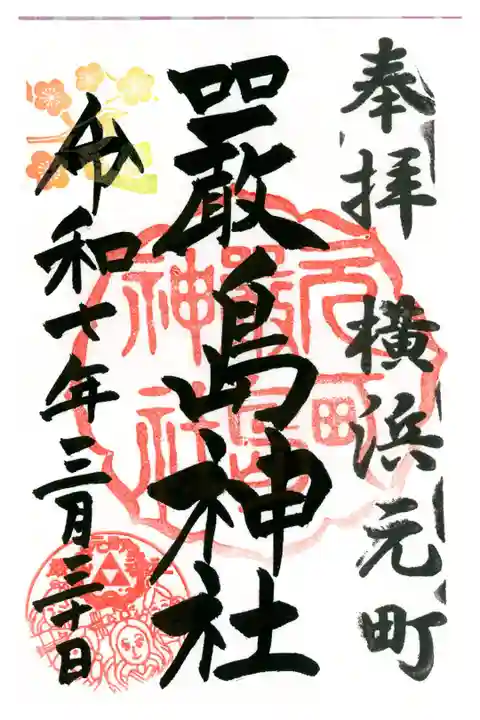 奉拝 横浜元町
嚴島神社
令和七年三月三十日
元町嚴島神社